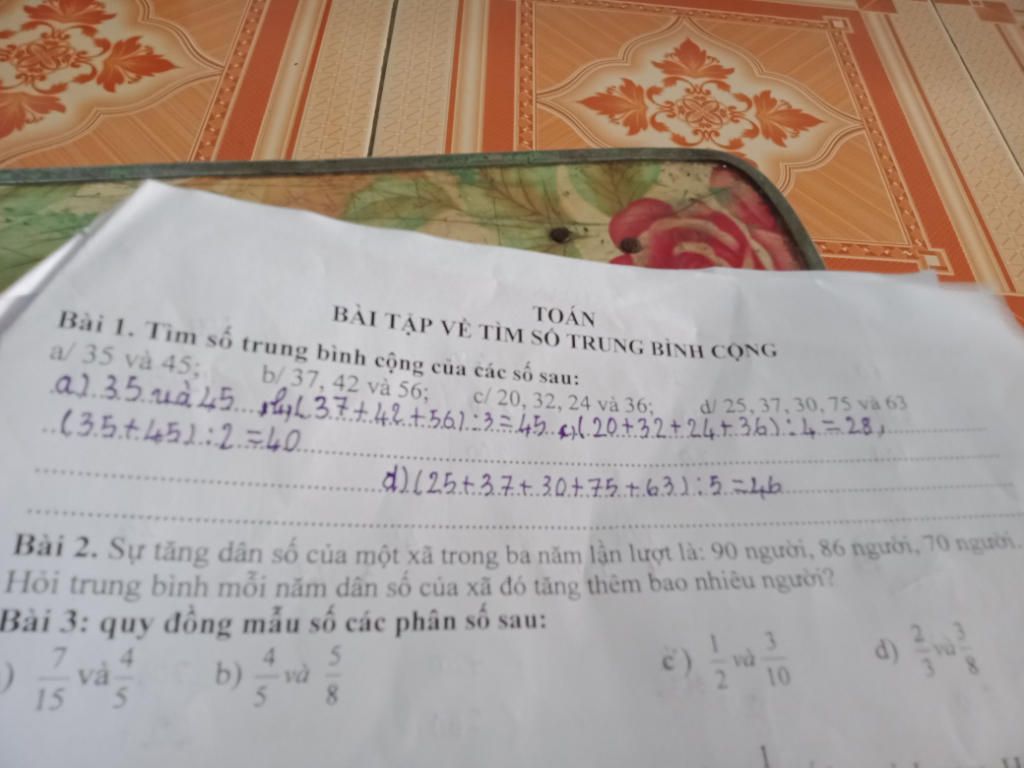 TOÁN
BÀI TẬP VỀ TÌM SỐ TRUNG BÌNH CỘNG
Bài 1. Tìm số trung bình cộng của các số sau:
a/ 35 và 45; b/ 37, 42 và 56; c/ 20, 32, 24 và 36; d/ 25, 37, 30, 75 và 63
a) 35 và 45 b, (37+42+56):3=45 c, (20+32+24+36):4=28,
(35+45):2=40
d) (25+37+30+75+63):5=46
Bài 2. Sự tăng dân số của một xã trong ba năm lần lượt là: 90 người, 86 người, 70 người.
Hỏi trung bình mỗi năm dân số của xã đó tăng thêm bao nhiêu người?
Bài 3: quy đồng mẫu số các phân số sau:
) 7/15 và 4/5 b) 4/5 và 5/8 c) 1/2 và 3/10 d) 2/3 và 3/8